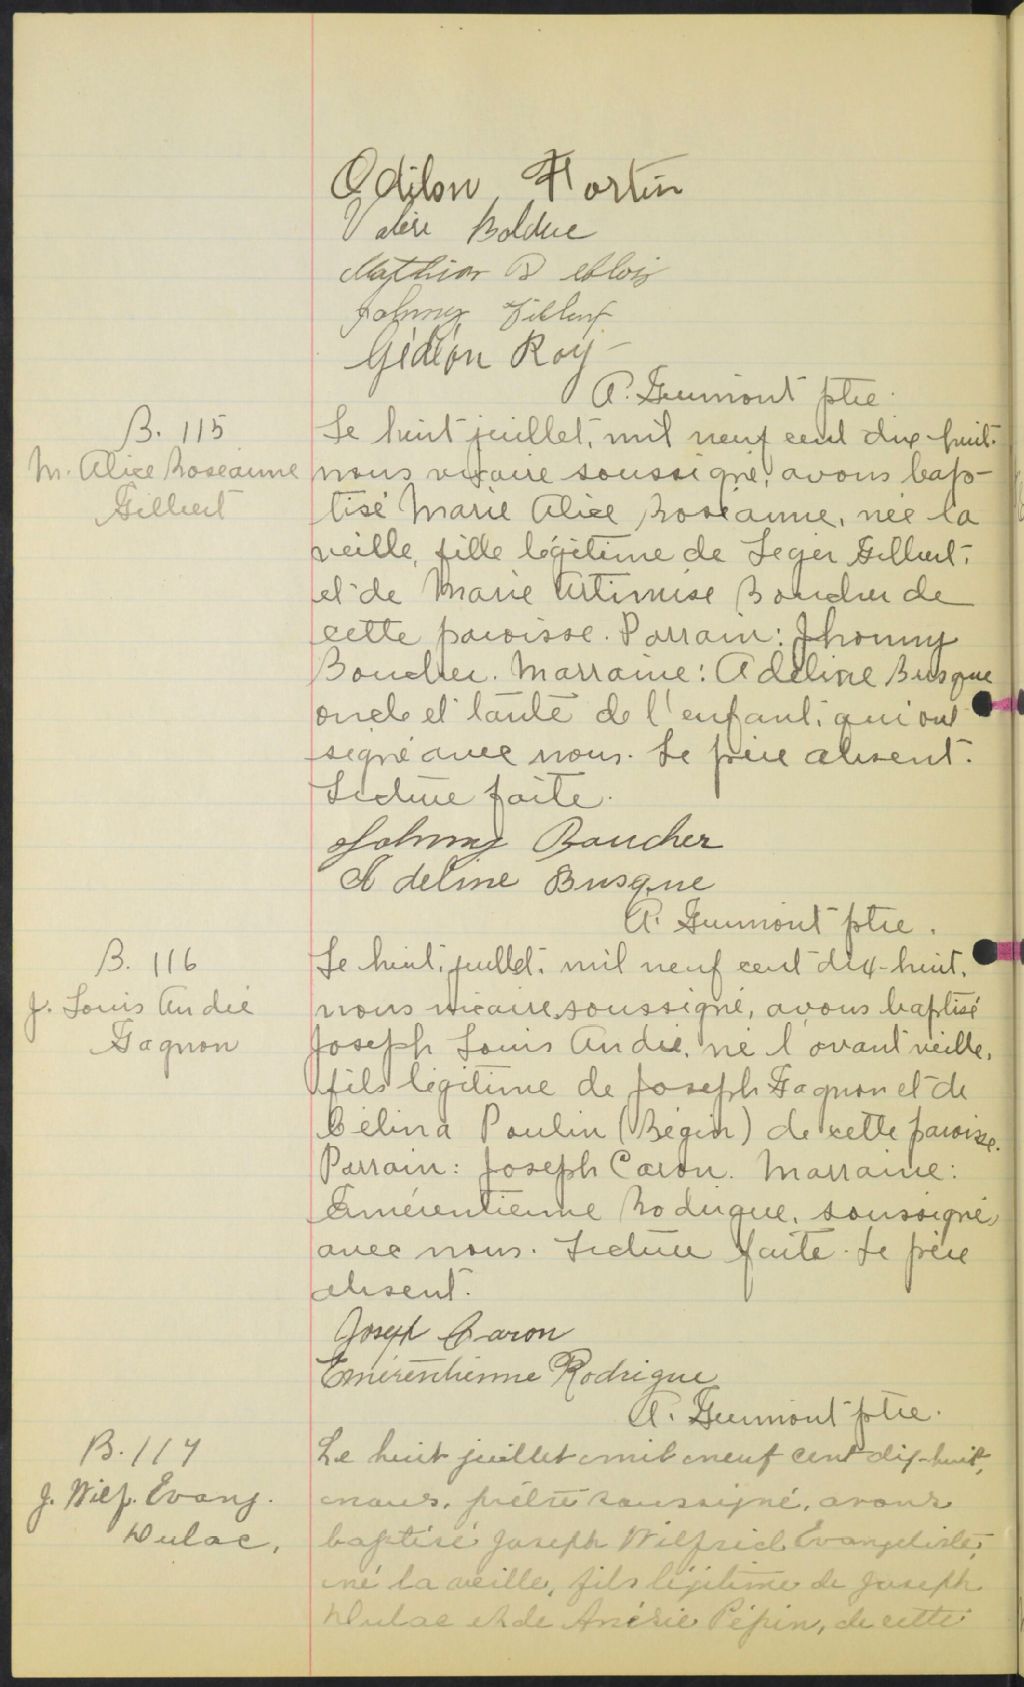 Odilon Fortin
Valère Bolduc
Mathias D eblois
Johnny
Gédéon Roy
A. Gumont ptre.
B. 115
M. Alice Roseanne
Gilbert
Le huit juillet, mil neuf cent dix-huit
nous vicaire soussigné, avons bap-
tisé Marie Alice Roséanne, née la
veille, fille légitime de Leger Gilbert,
et de Marie Artimise Boucher de
cette paroisse. Parrain: Jhonny
Boucher. Marraine: Adeline Busque
oncle et tante de l'enfant, qui ont
signé avec nous. Le père absent.
Lecture faite.
Johnny Boucher
Adeline Busque
A. Gumont ptre.
B. 116
J. Louis André
Gagnon
Le huit, juillet, mil neuf cent dix-huit,
nous vicaire soussigné, avons baptisé
Joseph Louis André, né l'avant veille,
fils légitime de Joseph Gagnon et de
Célina Poulin (Bégin) de cette paroisse.
Parrain: Joseph Caron. Marraine:
Emérentienne Rodrigue, soussignés
avec nous. Lecture faite. Le père
absent.
Joseph Caron
Emérentienne Rodrigue
A. Gumont ptre.
B. 117
J. Wilf. Evang.
Dulac,
Le huit juillet mil neuf cent dix-huit,
nous, prêtre soussigné, avons
baptisé Joseph Wilfrid Evangeliste,
né la veille, fils légitime de Joseph
Dulac et de Pépin, de cette